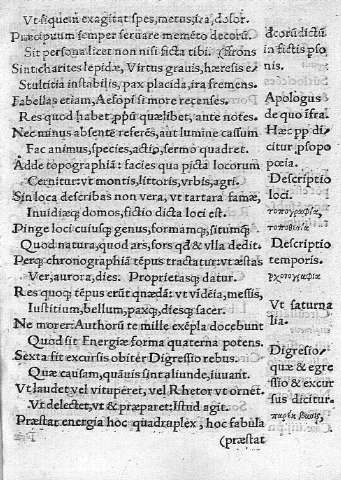 Vt siquem exagitat spes, metus, ira, dolor.
Præcipuum semper seruare memẽto decorũ.
Sit persona licet non nisi ficta tibi.
Sint charites lepidæ, Virtus grauis, hæresis
Stulticia instabilis, pax placida, ira fremens.
Fabellas etiam, Aesopi si more recenses.
Res quod habet quælibet, ante notes.
Nec minus absentẽ referẽs, aut lumine cassum
Fac animus, species, actio, sermo quadret.
Adde topographiã: facies qua picta locorum
Cernitur: vt montis, littoris, vrbis, agri.
Sin loca describas non vera, vt tartara famæ,
Inuidiæq; domos, fictio dicta loci est.
Pinge loci cuiusq; genus, formamq;, situmq;
Quod natura, quod ars, fors qd & vlla dedit.
Perq; chronographiã tẽpus tractatur: vt æstas
Ver, aurora, dies. Proprietasq; datur.
Res quoq; tẽpus erũt quædã: vt vidẽia, messis,
Iustitium, bellum, paxq;, diesq; sacer.
Ne morer: Authorũ te mille exẽpla docebunt
Quod sit Energiæ forma quaterna potens.
Sexta sit excursis obiter Digressio rebus.
Quæ causam, quãuis sint aliunde, iuuant.
Vt laudet vel vituperet, vel Rhetor vt ornet.
Vt delectet, vt & præparet: Istud agit.
Præstat energia hoc quadruplex, hoc fabula
(præstat
decorũ dictũ
in fictis pso
nis.
Apologus
de quo ifra.
Hæc pp di
citur, psopo
poœia.
Descriptio
loci.
τοπογραφία,
τοποθεσία
Descriptio
temporis.
Vt saturna
lia.
Digressio
quæ & egre
ssio & excur
sus dicitur.